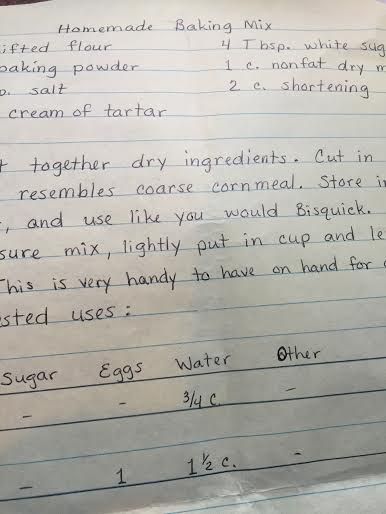 Homemade Baking Mix
ifted flour 4 Tbsp. white sug
baking powder 1 c. nonfat dry m
salt 2 c. shortening
cream of tartar
t together dry ingredients. Cut in
resembles coarse cornmeal. Store in
, and use like you would Bisquick.
sure mix, lightly put in cup and le
This is very handy to have on hand for
sted uses:
Sugar Eggs Water Other
- - 3/4 c. -
- 1 1 1/2 c. -